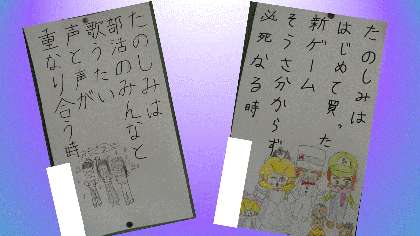 たのしみは
はじめて買った
新ゲーム
そうさ分からず
必死なる時
たのしみは
部活のみんなと
歌うたい
声と声が
重なり合う時